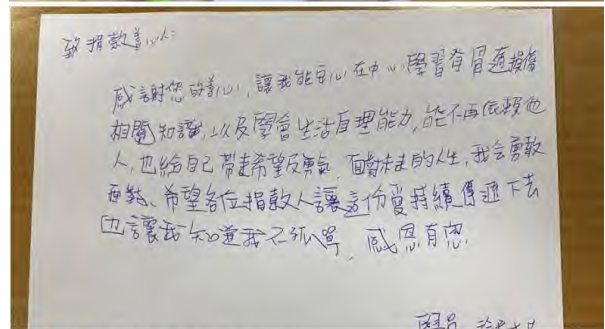 致捐款善心人:
感謝您的善心,讓我能安心在中心學習脊髓損傷
相關知識,以及學會生活自理能力,能不再依賴他
人,也給自己帶走希望及勇氣,面對未來的人生,我会勇敢
面對、希望各位捐款人讓這份愛持續傳遞下去
也讓我知道我不孤單,感恩有您
學員